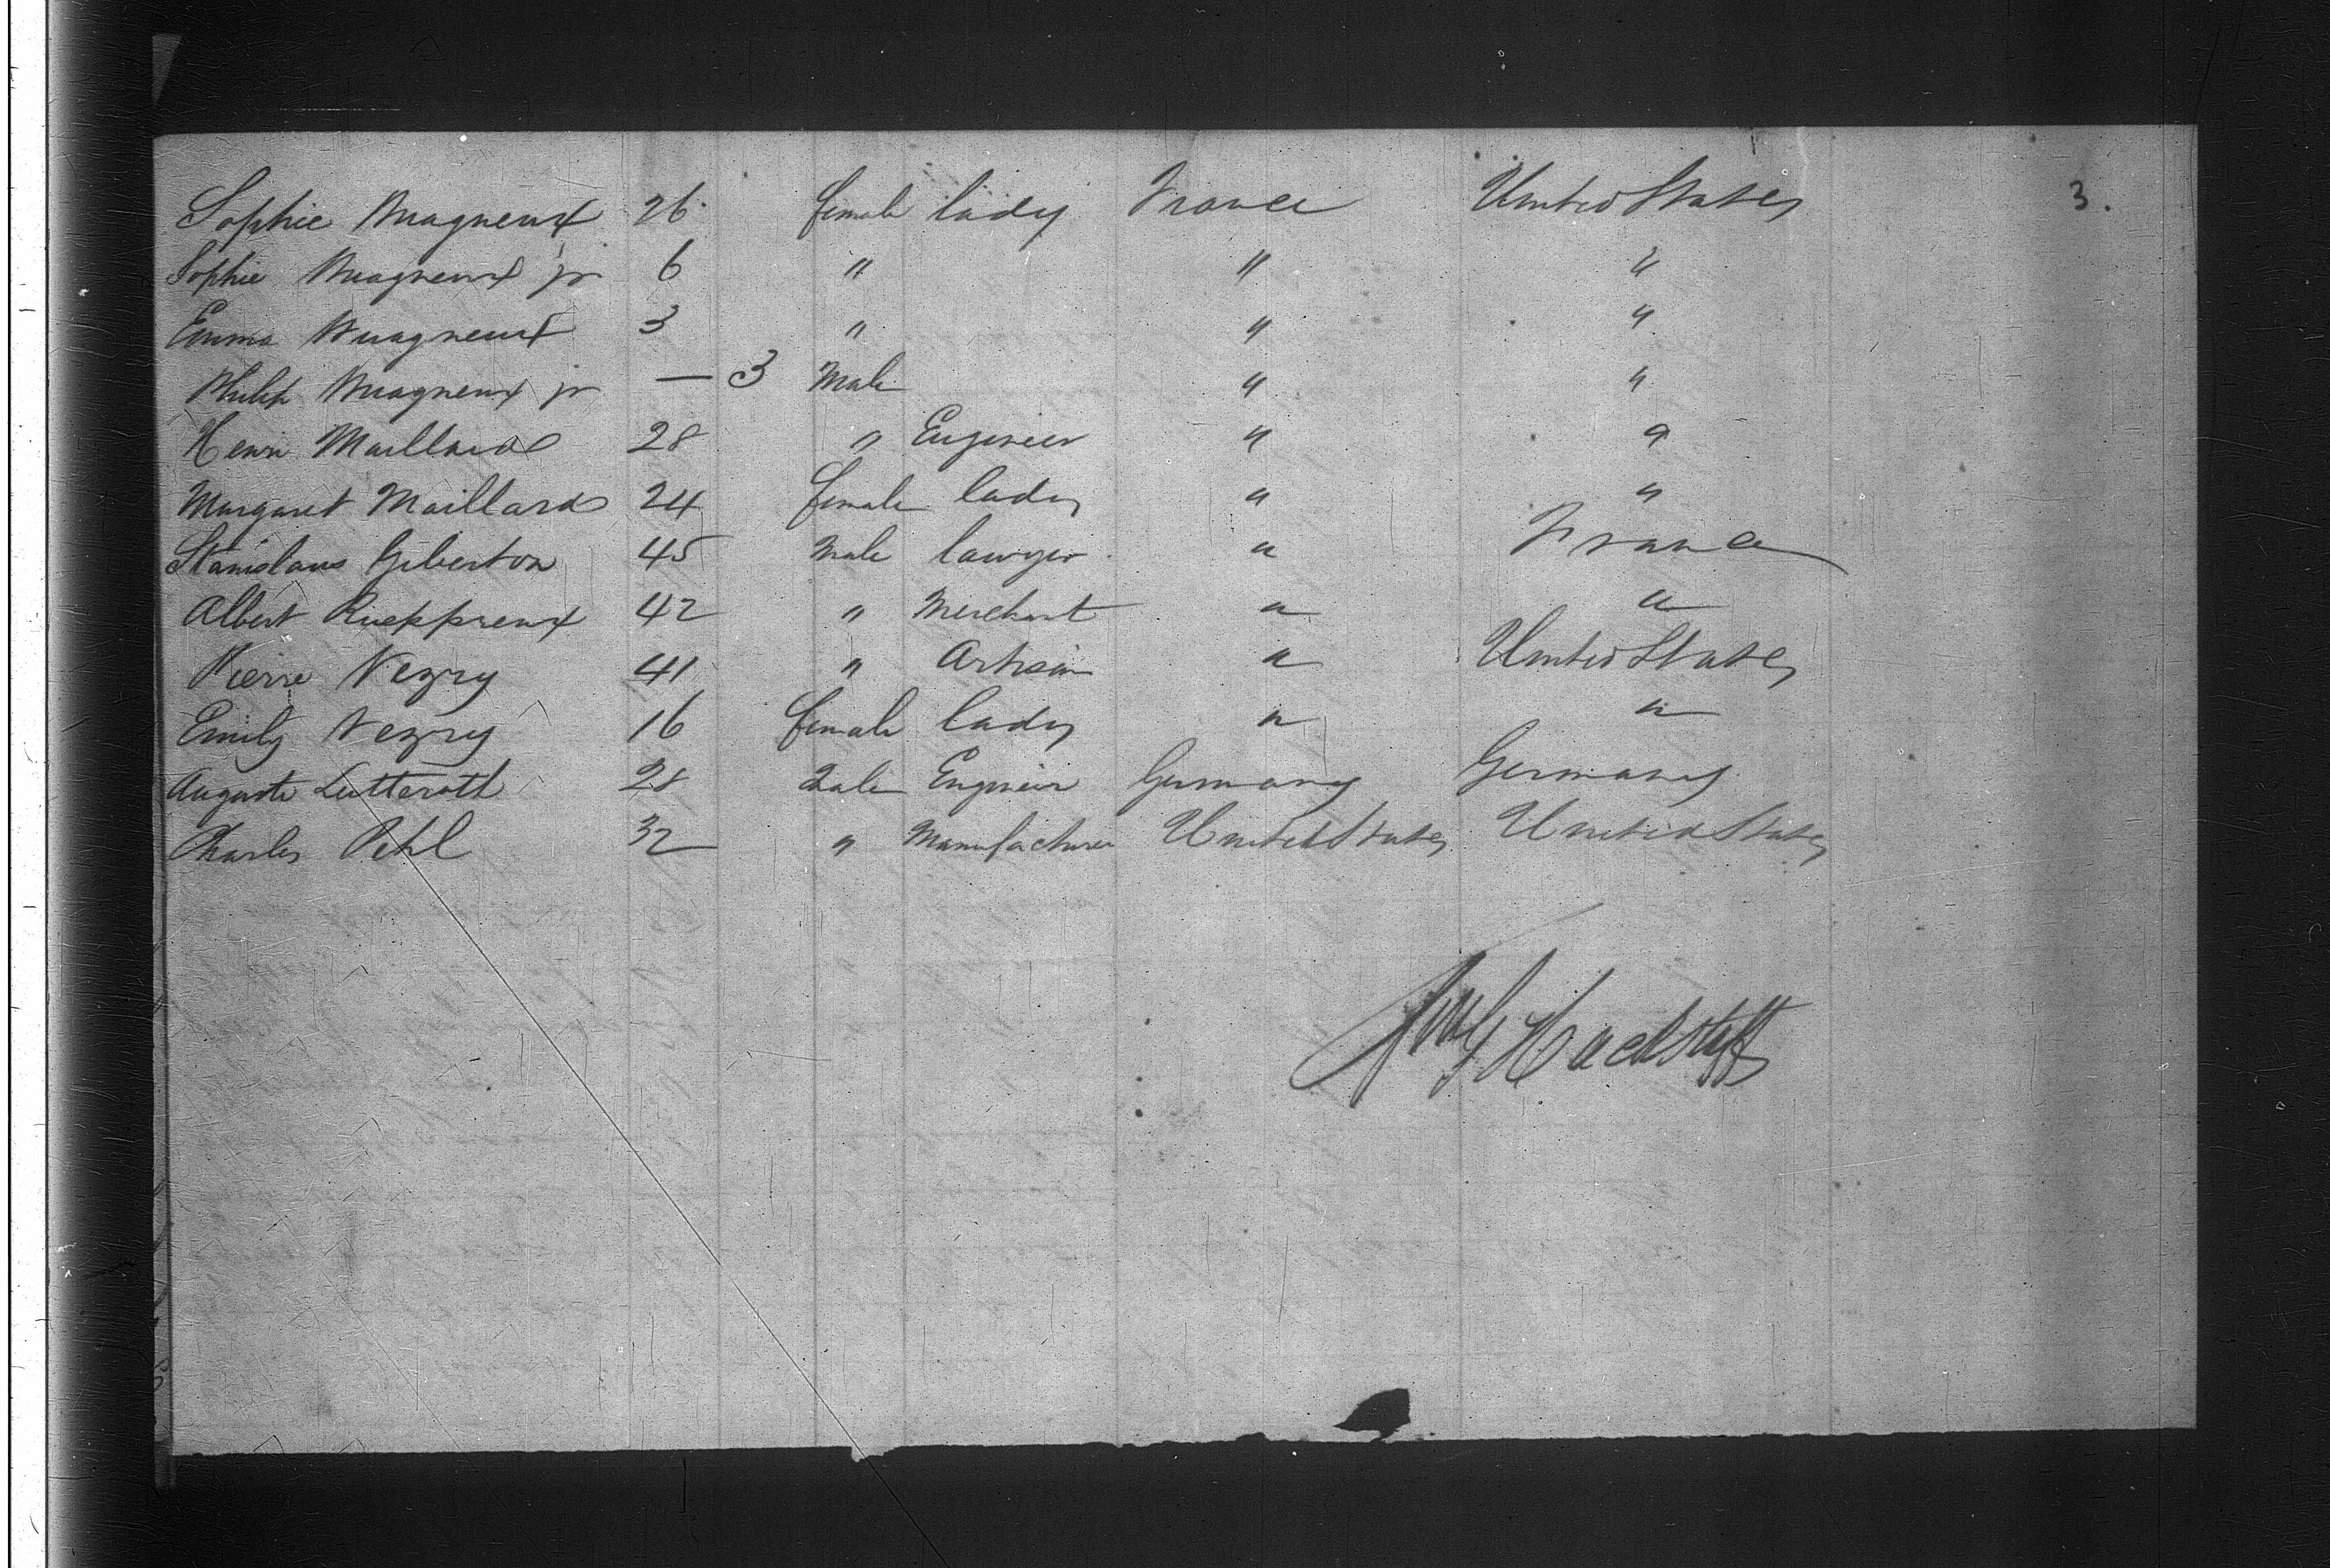 Sophie Magneux 26 female lady France United States 3.
Sophie Magneux jr 6 " " "
Emma Magneux 3 " " "
Philip Magneux jr — 3 Male " "
Henri Maillard 28 " Engineer " "
Margaret Maillard 24 female lady " "
Stanislaus Giberton 45 Male lawyer " France
Albert 42 " Merchant " "
Pierre Vezry 41 " Artisan " United States
Emily Vezry 16 female lady " "
Auguste Lutteroth 28 Male Engineer Germany Germany
Charles Pehl 32 " Manufacturer United States United States